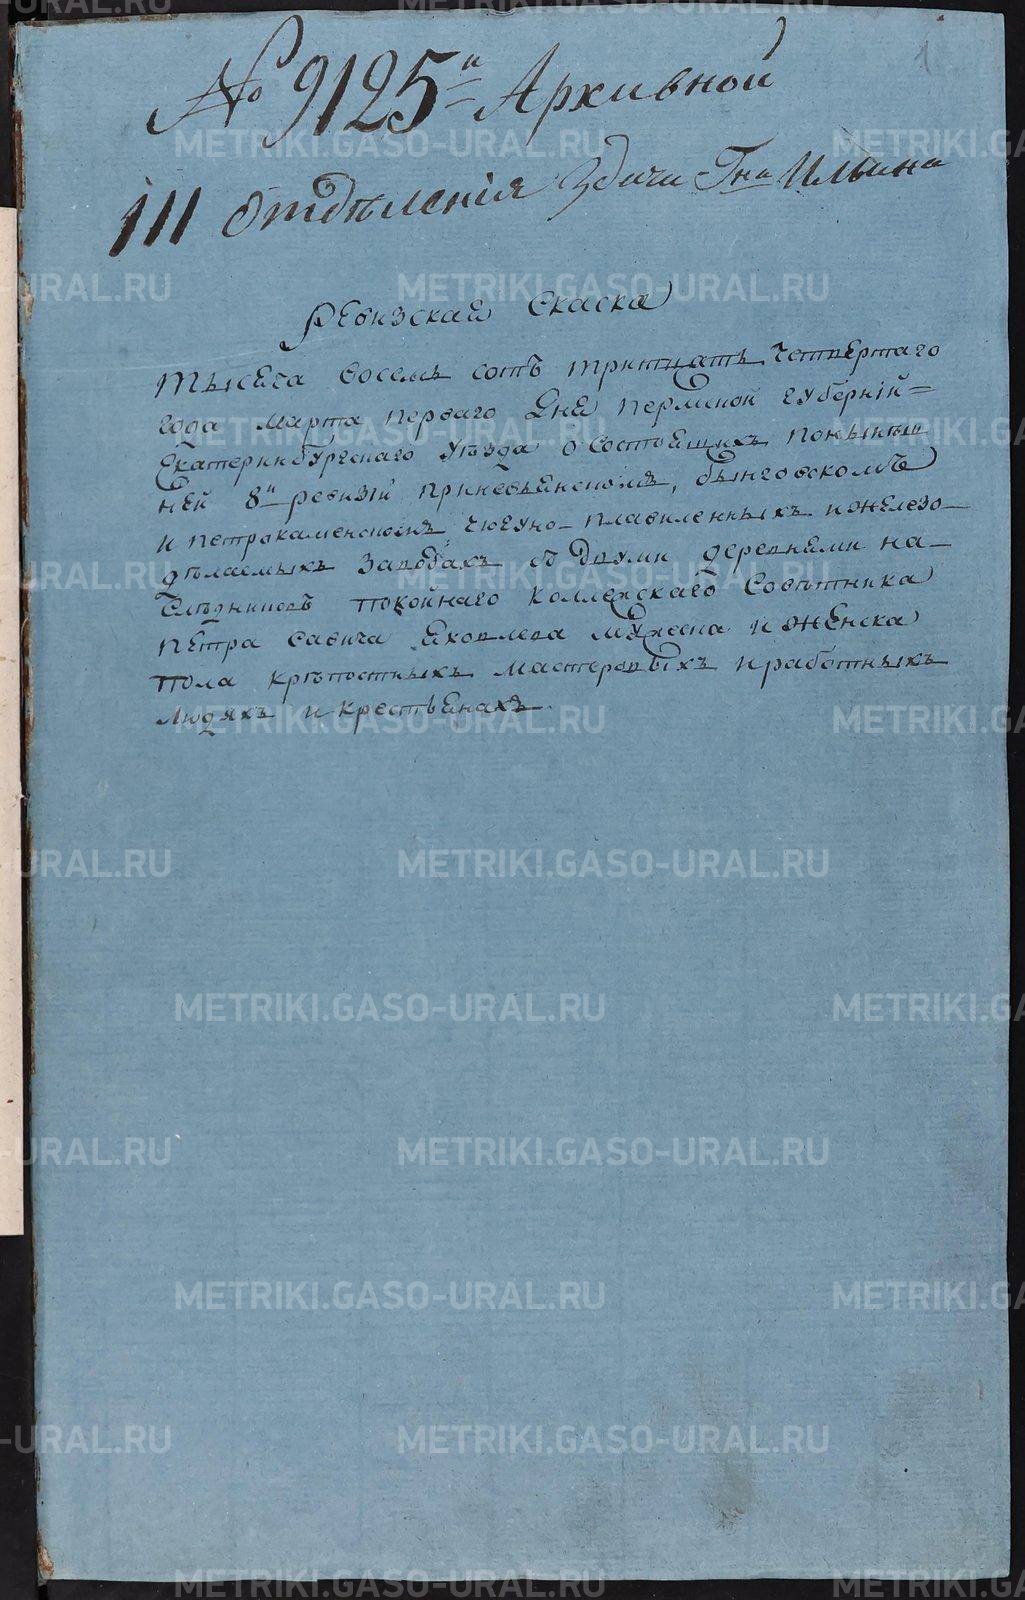 1
№ 9125й Архивной
III Отдѣленія Здачи Гна Ильина
Ревизская Скаска
тысеча восемь сотъ тритцать четвертаго
года марта перваго дня пермской губерніи=
Екатеринбургскаго уѣзда о состоящихъ понынѣш
ней 8й ревизіи приневьянскомъ, быньговскомъ
и петрокаменскомъ чюгуно-плавиленныхъ и железо-
дѣлаемыхъ заводахъ съ двумя деревнями на-
слѣдниковъ покойнаго коллежскаго Совѣтника
петра савича яковлева мужска и женска
пола крѣпостныхъ мастеровыхъ и работныхъ
людяхъ и крестьянахъ.
METRIKI.GASO-URAL.RU